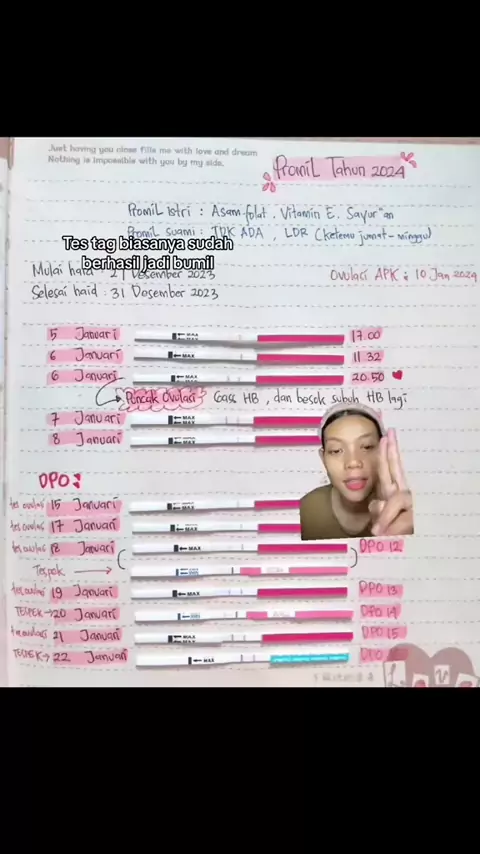 Just having you close fills me with love and dream
Nothing is impossible with you by my side.
Promil Tahun 2024
Promil Istri : Asam folat, Vitamin E. Sayur"an
Promil Suami : TDK ADA, LDR (ketemu jumat-minggu)
Tes tag biasanya sudah
berhasil jadi bumil
Mulai haid : 27 Desember 2023
Ovulasi APK : 10 Jan 2024
Selesai haid : 31 Desember 2023
5 Januari MAX 17.00
6 Januari MAX 11.32
6 Januari MAX 20.50
Puncak Ovulasi Gass HB, dan besok subuh HB lagi
7 Januari MAX
8 Januari MAX
DPO :
tes ovulasi 15 Januari MAX
tes ovulasi 17 Januari MAX
tes ovulasi 18 Januari MAX DPO 12
Tespek
tes ovulasi 19 Januari MAX DPO 13
TESPEK 20 Januari DPO 14
tes ovulasi 21 Januari MAX DPO 15
TESPEK 22 Januari MAX DPO